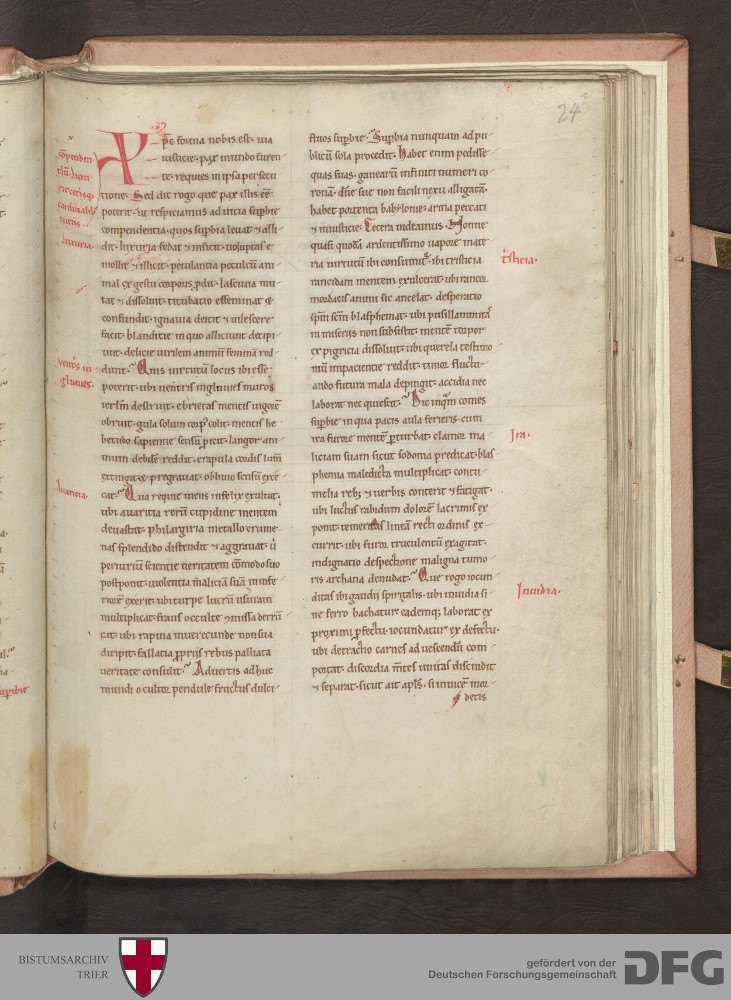 24
fortia nobis est. uia
iusticie. pax mundo furen
te. requies in ipsa persecu
tione. Sed dic rogo que pax illis eē
poterit. ut respiciamus ad uitia supbie
compendentia. quos supbia leuat & alli
dit. luxuria fedat & inficit. uoluptas e
mollit & illicit. petulantia peculcū ani
mal ex gestu corporis pdit. lasciuia mu
tat & dissoluit. titubatio effeminat &
confundit. ignauia deicit & uilescere
facit. blanditie in quo alliciunt decipi
unt. delicie uirilem animū feminā red
dunt. Quis uirtutū locus ibi esse
poterit. ubi uentris ingluuies muros
ierlm destruit. ebrietas mentis uigorē
obruit. gula solum corp colit. mentis he
betudo sapientie sensū pimit. langor ani
mum debilē reddit. crapula cordis lumē
extinguit & pregrauat. obliuio sensū exce
cat. Qua requie mens infelix exultat.
ubi auaritia rerū cupidine mentem
deuastat. philargiria metallo crume
nas splendido distendit & aggrauat. ubi
periuriū scientie ueritatem cōmodo suo
postponit. uiolentia maliciā suā
exerit. ubi turpe lucrū usuram
multiplicat. fraus occulte
cat. ubi rapina inuerecunde non sua
diripit. fallatia pprijs rebus palliata
ueritate consulit. Aduertis adhuc
mundi o cultor pendule fructus dulci
fluos supbie. Supbia nunquam ad pu
blicū sola procedit. habet enim pedisse
quas suas. ganearū infiniti numeri co
ronā. dn̄e sue non facili nexu alligatā.
habet portenta babylonie. arma peccati
& iniusticie. Cetera uideamus. Nonne
quasi quodā ardentissimo uapore mate
ria uirtutū ibi consumit. ubi tristicia
rancidam mentem exulcerat. ubi rancor
mordacis animi sic ancelat. desperatio
spm scm blasphemat. ubi pusillanimitas
in miseriis non subsistit. mentē torpor
ex pigricia dissoluit. ubi querela testimo
niū impacientie reddit. timor fluctu
ando futura mala depingit. accidia nec
laborat nec quiescit. Dic inqm comes
supbie in qua pacis aula ferieris. cum
ira furore mentē pturbat. clamor ma
liciam suam sicut sodoma predicat. blas
phemia maledicta multiplicat. contu
melia reb; & uerbis conterit & fatigat.
ubi luctus rabidum dolorē lacrimis ex
ponit. temeritas lineā recti ordinis ex
currit. ubi furor truculentū exagitat.
indignatio despectione maligna tumo
ris archana denudat. Que rogo iocun
ditas ibi gaudii spiritalis. ubi inuidia si
ne ferro bachatur eademq; laborat ex
proximi pfectu. iocundatur ex defectu.
ubi detractio carnes ad uescendū com
portat. discordia mentes unitas discindit
& separat. sicut ait apls. si inuicē mor
detis
luxuria.
uentris in
gluuies.
Auaricia.
tristicia.
Ira.
Inuidia.
supbie
BISTUMSARCHIV
TRIER
gefördert von der
Deutschen Forschungsgemeinschaft
DFG